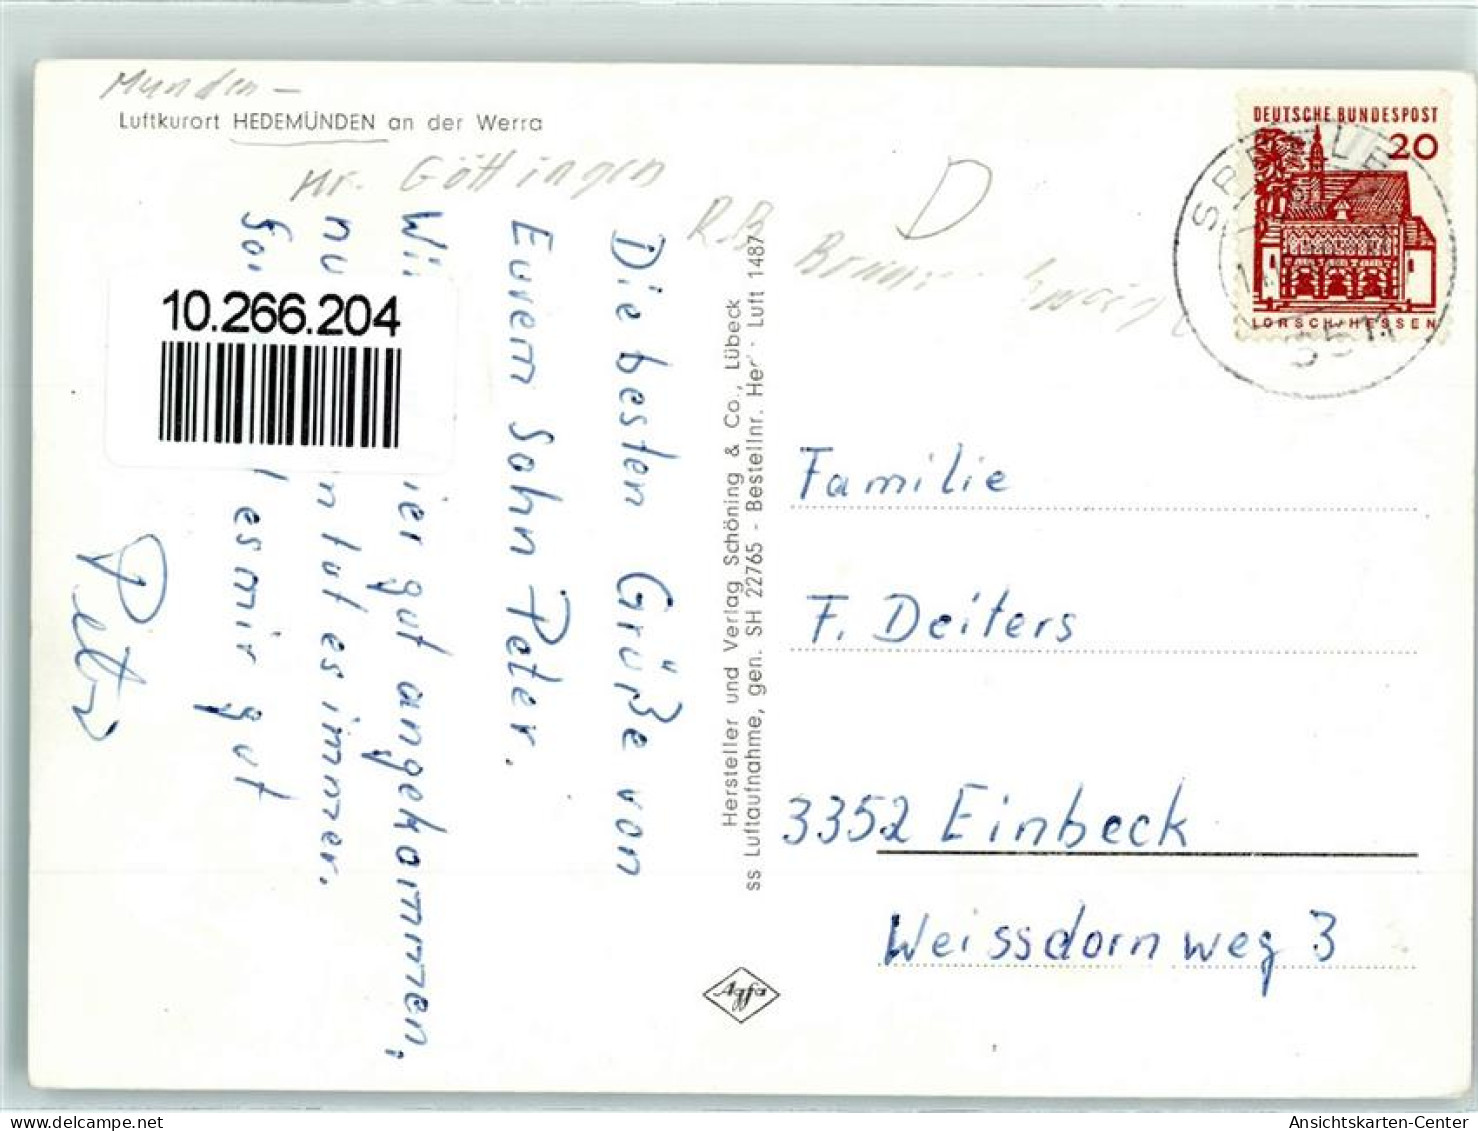 Munden -
Luftkurort HEDEMÜNDEN an der Werra
Kr. Göttingen
R.B
D
DEUTSCHE BUNDESPOST
20
LORSCH/HESSEN
3511
10.266.204
Die besten Grüße von
Eurem Sohn Peter.
ier gut angekommen,
nu n tut es immer.
es mir gut
Peter
Hersteller und Verlag Schöning & Co., Lübeck
ss Luftaufnahme, gen. SH 22765 - Bestellnr. Luft 1487
Familie
F. Deiters
3352 Einbeck
Weissdornweg 3
Agfa
Ansichtskarten-Center